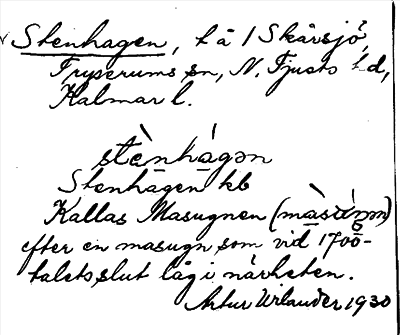 Stenhagen, t å 1 Skårsjö,
Tryserums sn, N. Tjusts hd,
Kalmar l.
stènhágən
Stenhagen kb
Kallas Masugnen
efter en masugn, som vid 1700-
talets slut låg i närheten.
Artur Wilander 1930